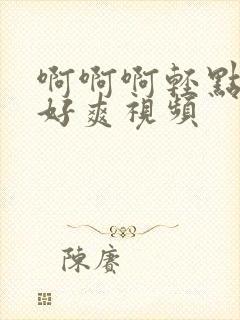 啊啊啊轻點
好爽视頻
陳賡